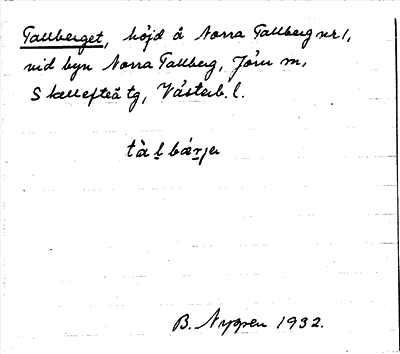 Tallberget, höjd å Norra Tallberg nr 1,
vid byn Norra Tallberg, Jörn m,
Skellefteå tg, Västerb. l.
tàl̠bǽr̠je
B. Nygren 1932.